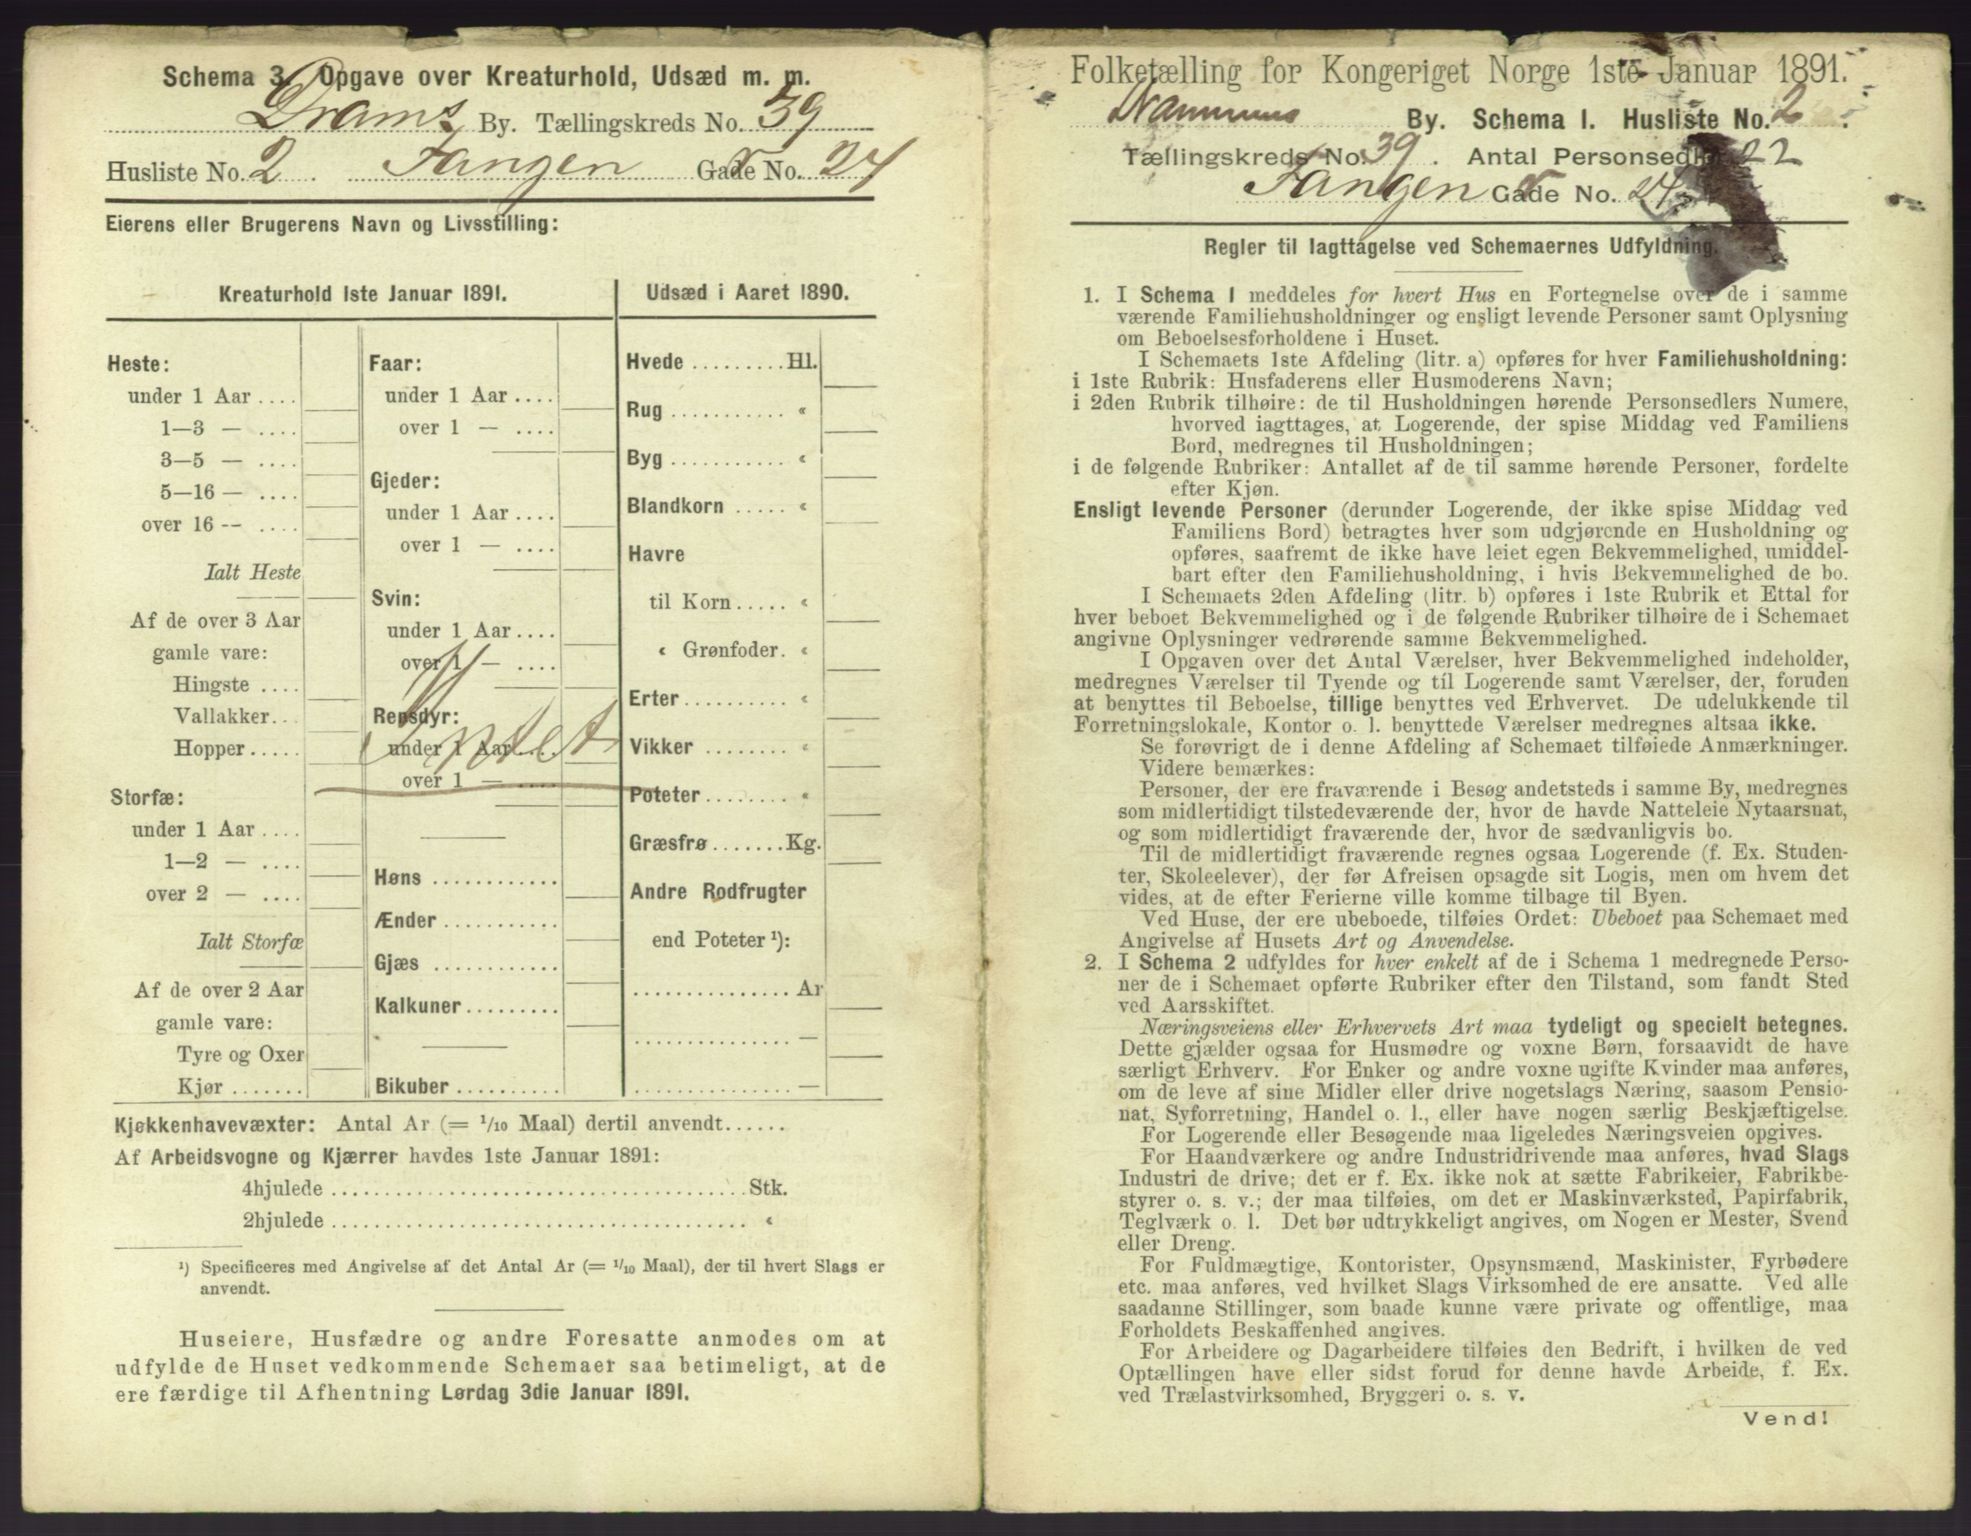 Schema 3. Opgave over Kreaturhold, Udsæd m. m.
Drams By. Tællingskreds No. 39
Husliste No. 2 Tangen Gade No. 24
Eierens eller Brugerens Navn og Livsstilling:
Kreaturhold 1ste Januar 1891.
Heste:
under 1 Aar ....
1—3 — ....
3—5 — ....
5—16 — ....
over 16 -- ....
Ialt Heste
Af de over 3 Aar
gamle vare:
Hingste ....
Vallakker...
Hopper.....
Storfæ:
under 1 Aar ....
1—2 — ....
over 2 — ....
Ialt Storfæ
Af de over 2 Aar
gamle vare:
Tyre og Oxer
Kjør .......
Faar:
under 1 Aar ....
over 1 — ....
Gjeder:
under 1 Aar ....
over 1 — ....
Svin:
under 1 Aar ....
over 1 — ....
Rensdyr:
under 1 Aar ....
over 1 —
Intet
Høns ............
Ænder ...........
Gjæs ............
Kalkuner.........
Bikuber ..........
Udsæd i Aaret 1890.
Hvede .........Hl.
Rug ........... «
Byg ........... «
Blandkorn ..... «
Havre
til Korn..... «
« Grønfoder. «
Erter ......... «
Vikker ........ «
Poteter........ «
Græsfrø.......Kg.
Andre Rodfrugter
end Poteter ¹):
............... Ar
............... —
............... —
Kjøkkenhavevæxter: Antal Ar (= 1/10 Maal) dertil anvendt......
Af Arbeidsvogne og Kjærrer havdes 1ste Januar 1891:
4hjulede ........................................Stk.
2hjulede ........................................ «
¹) Specificeres med Angivelse af det Antal Ar (= 1/10 Maal), der til hvert Slags er
anvendt.
Huseiere, Husfædre og andre Foresatte anmodes om at
udfylde de Huset vedkommende Schemaer saa betimeligt, at de
ere færdige til Afhentning Lørdag 3die Januar 1891.
Folketælling for Kongeriget Norge 1ste Januar 1891.
Drammens By. Schema I. Husliste No. 2
Tællingskreds No. 39. Antal Personsedler 22
Tangen Gade No. 24
Regler til Iagttagelse ved Schemaernes Udfyldning.
1. I Schema 1 meddeles for hvert Hus en Fortegnelse over de i samme
værende Familiehusholdninger og ensligt levende Personer samt Oplysning
om Beboelsesforholdene i Huset.
I Schemaets 1ste Afdeling (litr. a) opføres for hver Familiehusholdning:
i 1ste Rubrik: Husfaderens eller Husmoderens Navn;
i 2den Rubrik tilhøire: de til Husholdningen hørende Personsedlers Numere,
hvorved iagttages, at Logerende, der spise Middag ved Familiens
Bord, medregnes til Husholdningen;
i de følgende Rubriker: Antallet af de til samme hørende Personer, fordelte
efter Kjøn.
Ensligt levende Personer (derunder Logerende, der ikke spise Middag ved
Familiens Bord) betragtes hver som udgjørende en Husholdning og
opføres, saafremt de ikke have leiet egen Bekvemmelighed, umiddel-
bart efter den Familiehusholdning, i hvis Bekvemmelighed de bo.
I Schemaets 2den Afdeling (litr. b) opføres i 1ste Rubrik et Ettal for
hver beboet Bekvemmelighed og i de følgende Rubriker tilhøire de i Schemaet
angivne Oplysninger vedrørende samme Bekvemmelighed.
I Opgaven over det Antal Værelser, hver Bekvemmelighed indeholder,
medregnes Værelser til Tyende og til Logerende samt Værelser, der, foruden
at benyttes til Beboelse, tillige benyttes ved Erhvervet. De udelukkende til
Forretningslokale, Kontor o. l. benyttede Værelser medregnes altsaa ikke.
Se forøvrigt de i denne Afdeling af Schemaet tilføiede Anmærkninger.
Videre bemærkes:
Personer, der ere fraværende i Besøg andetsteds i samme By, medregnes
som midlertidigt tilstedeværende der, hvor de havde Natteleie Nytaarsnat,
og som midlertidigt fraværende der, hvor de sædvanligvis bo.
Til de midlertidigt fraværende regnes ogsaa Logerende (f. Ex. Studen-
ter, Skoleelever), der før Afreisen opsagde sit Logis, men om hvem det
vides, at de efter Ferierne ville komme tilbage til Byen.
Ved Huse, der ere ubeboede, tilføies Ordet: Ubeboet paa Schemaet med
Angivelse af Husets Art og Anvendelse.
2. I Schema 2 udfyldes for hver enkelt af de i Schema 1 medregnede Perso-
ner de i Schemaet opførte Rubriker efter den Tilstand, som fandt Sted
ved Aarsskiftet.
Næringsveiens eller Erhvervets Art maa tydeligt og specielt betegnes.
Dette gjælder ogsaa for Husmødre og voxne Børn, forsaavidt de have
særligt Erhverv. For Enker og andre voxne ugifte Kvinder maa anføres,
om de leve af sine Midler eller drive nogetslags Næring, saasom Pensio-
nat, Syforretning, Handel o. l., eller have nogen særlig Beskjæftigelse.
For Logerende eller Besøgende maa ligeledes Næringsveien opgives.
For Haandværkere og andre Industridrivende maa anføres, hvad Slags
Industri de drive; det er f. Ex. ikke nok at sætte Fabrikeier, Fabrikbe-
styrer o. s. v.; der maa tilføies, om det er Maskinværksted, Papirfabrik,
Teglværk o. l. Det bør udtrykkeligt angives, om Nogen er Mester, Svend
eller Dreng.
For Fuldmægtige, Kontorister, Opsynsmænd, Maskinister, Fyrbødere
etc. maa anføres, ved hvilket Slags Virksomhed de ere ansatte. Ved alle
saadanne Stillinger, som baade kunne være private og offentlige, maa
Forholdets Beskaffenhed angives.
For Arbeidere og Dagarbeidere tilføies den Bedrift, i hvilken de ved
Optællingen have eller sidst forud for denne havde Arbeide, f. Ex.
ved Trælastvirksomhed, Bryggeri o. s. v.
Vend!